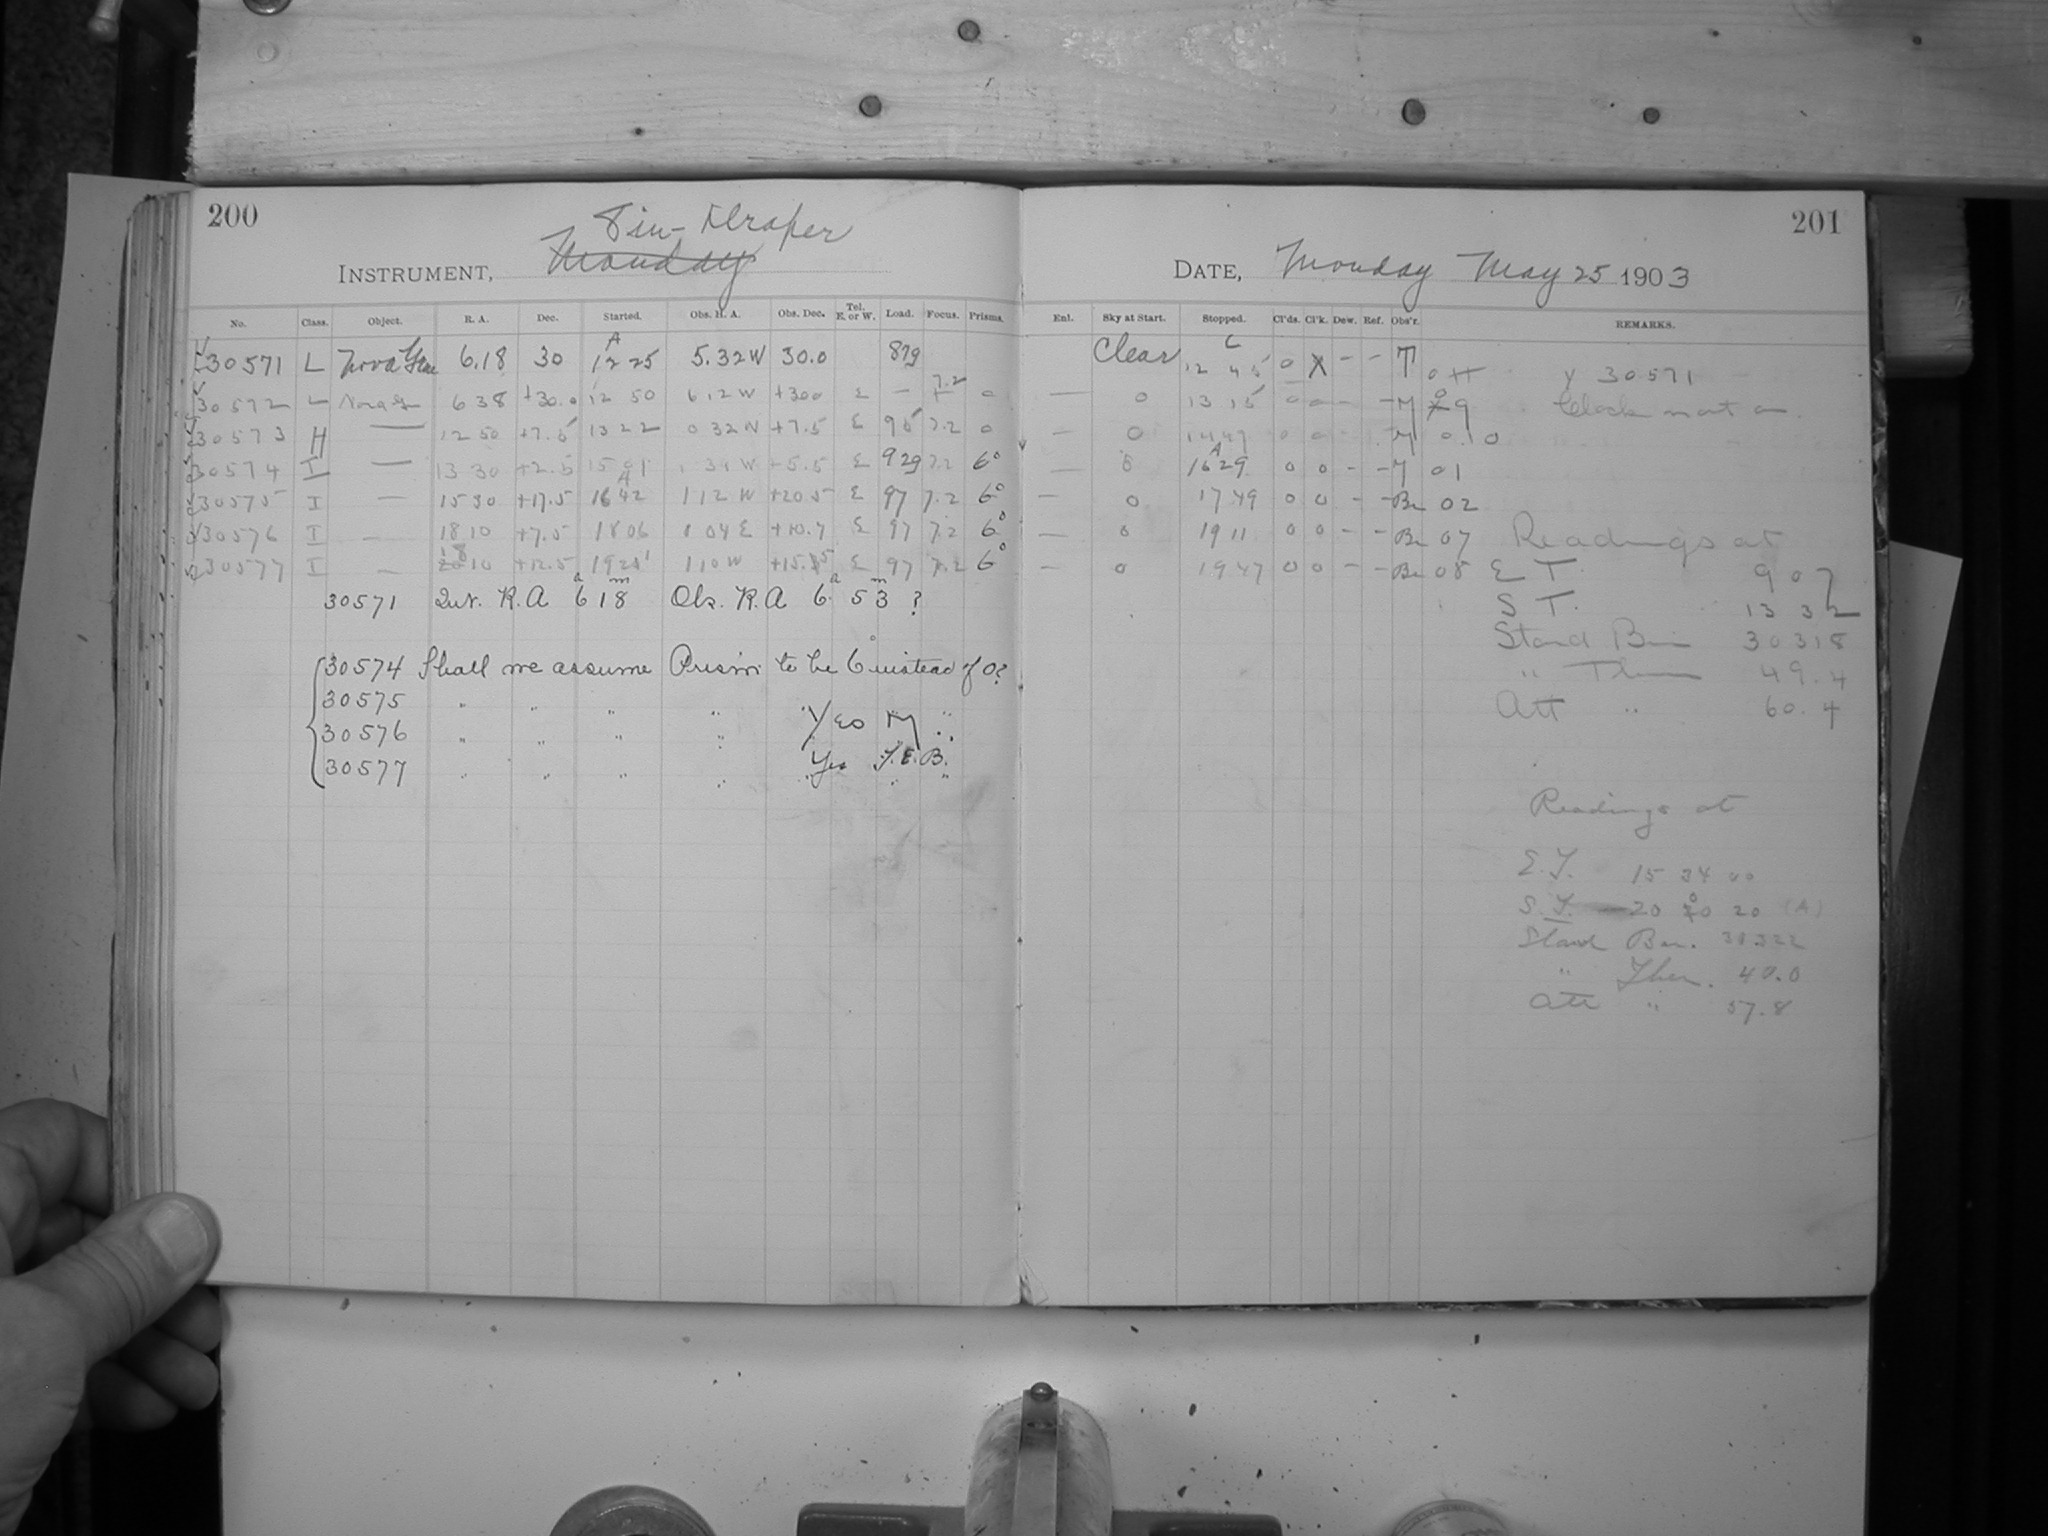 200
8 in - Draper
INSTRUMENT, Monday
No. Class. Object. R. A. Dec. Started. Obs. H. A. Obs. Dec. Tel. E. or W. Load. Focus. Prisms.
30571 L Nova Gem 6.18 30 A 12 25 5.32 W 30.0 879
30572 L Nova G 6 38 +30.0 12 50 6 12 W +300 E — 7.2 0
30573 H — 12 50 +7.5 13 22 0 32 W +7.5 E 95 7.2 0
30574 I — 13 30 +2.5 15 01 1 31 W +5.5 E 929 7.2 6°
30575 I — 15 30 +17.5 A 16 42 1 12 W +20.5 E 97 7.2 6°
30576 I — 18 10 +7.5 18 06 1 04 E +10.7 E 97 7.2 6°
30577 I — 18 10 +12.5 19 21 1 10 W +15.5 E 97 7.2 6°
30571 Int. R. A 6 18 m Obs. R. A 6 53 m ?
30574 Shall we assume Prism to be 6° instead of 0?
30575 " " " " " " "
30576 " " " " Yes M "
30577 " " " " Yes F. E. B.
201
DATE, Monday May 25 1903
Enl. Sky at Start. Stopped. Cl'ds. Cl'k. Dew. Ref. Obs'r. REMARKS.
Clear C 12 45 0 X - - M
30571
— 0 13 15 0 0 - - M 9 Clock not on.
— 0 14 47 0 0 - - M 0.10
— 0 A 16 29 0 0 - - M 01
— 0 17 49 0 0 - - Br 02
— 0 19 11 0 0 - - Br 07 Readings at
— 0 19 47 0 0 - - Br 08 E T. 9 07
S T. 13 32
Stand Bar 30318
" Ther 49.4
Att " 60.4
Readings at
E. T. 15 34 00
S. T. 20 20 (A)
Stand Bar. 30.322
" Ther. 40.0
Att " 57.8